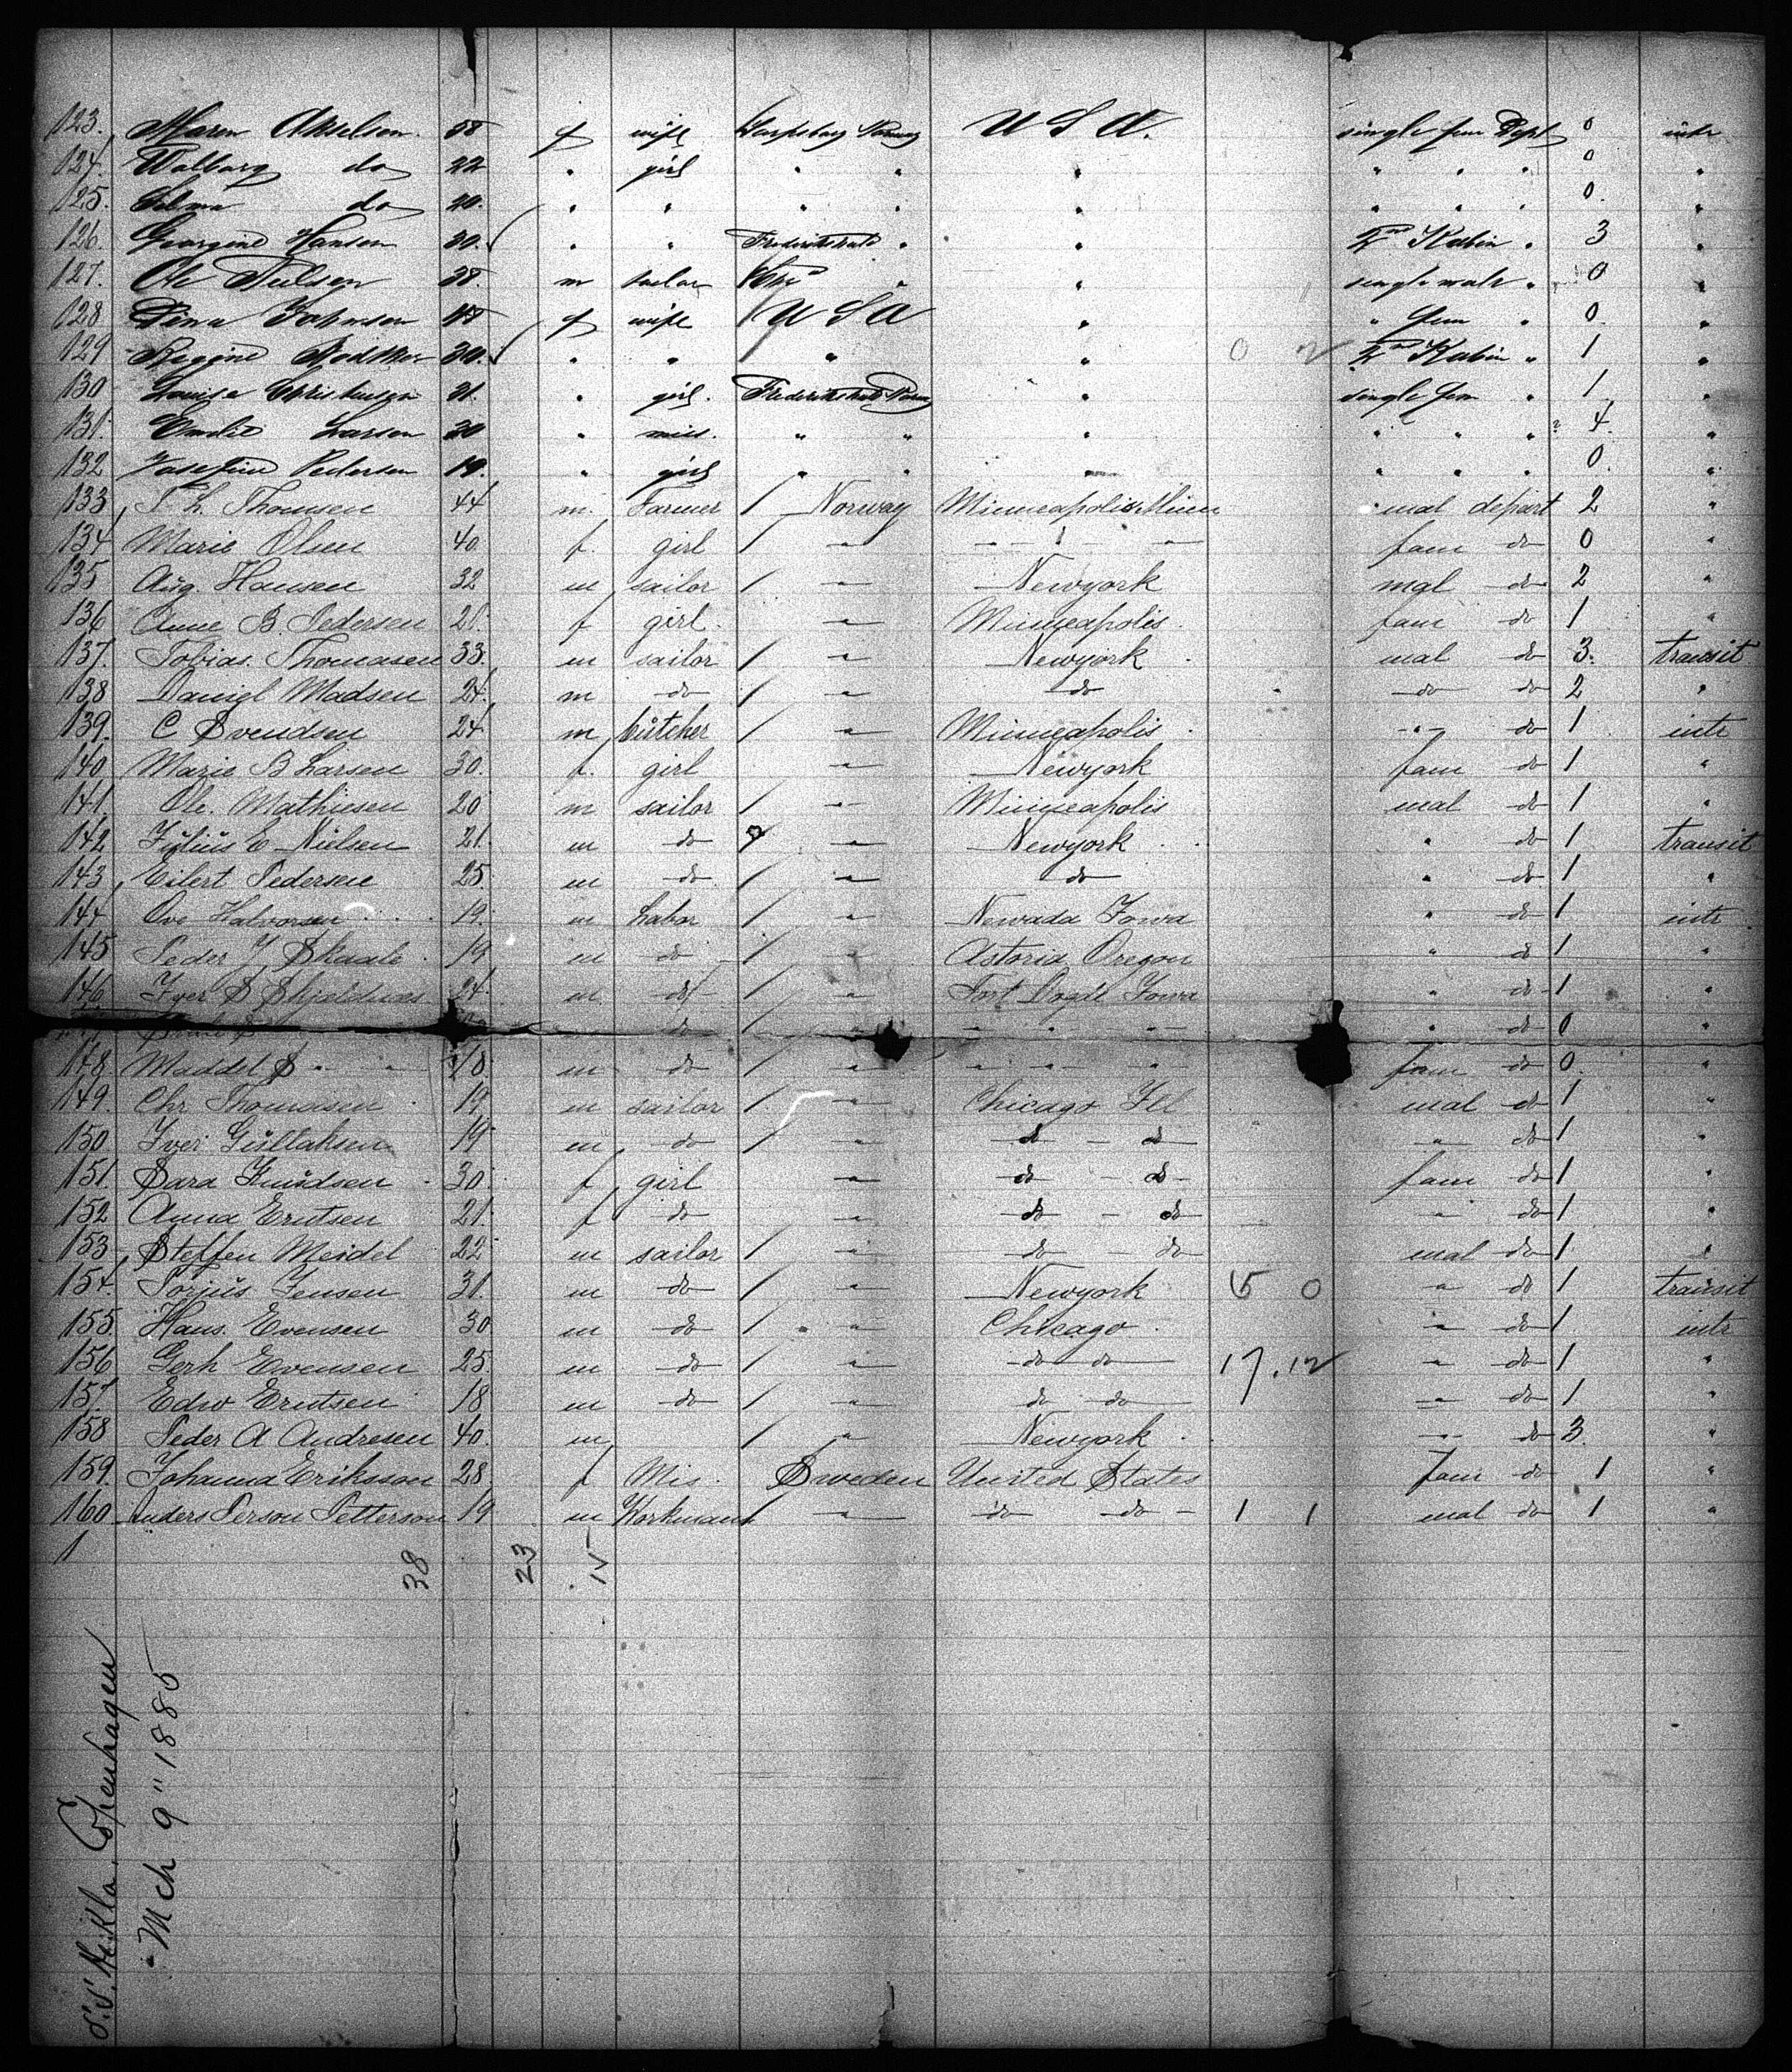 123. Maren Akselsen. 58 f wife Sarpsborg Norway U S A. single fem Dept 0 intr
124. Walborg do 22 " girl " " " " " " 0 "
125. Selma do 20. " " " " " " " " 0. "
126. Georgine Hansen 30. " " Frederikstad " " 2nd Kabin " 3 "
127. Ole Nielsen 38. m sailor " " single male " 0 "
128 Dina Johnsen f wife U S A " " fem " 0. "
129 Regine 30. " " " " 0 2 2nd Kabin " 1 "
130 Louise Christensen 21. " girl. Frederikstad Norway " single fem " 1. "
131. Emilie Larsen 20 " miss. " " " " " " 4. "
132 Josefine Pedersen 19. " girl " " " " " " 0. "
133 T. L. Thomsen 44 m. Farmer / Norway Minneapolis Minn mal depart 2 "
134 Marie Olsen 40. f. girl / " - - " - " fam do 0 "
135 Aug. Hansen 32 m sailor / " Newyork mal do 2 "
136 Anne B. Pedersen 21. f girl. " Minneapolis. fam do 1 "
137. Tobias. Thomasen 33. m sailor / " Newyork mal do 3. transit
138 Daniel Madsen 24. m do / " do do do 2 "
139. C Svendsen 24 m butcher / " Minneapolis. " do 1 intr
140 Marie B Larsen 30. f. girl " Newyork fam do 1 "
141. Ole. Mathiesen 20 m sailor / " Minneapolis mal do 1 "
142 Julius E Nielsen 21. m do " Newyork " do 1 transit
143 Eilert Pedersen 25. m do / " do " do 1 "
144 Ove Halvorsen 19. m Labor / " Newada Iowa " do 1 intr
145 Peder J Skaale 19 m do / " Astoria Oregon " do 1 "
146 Iver S 24. m do / " Fort Iowa " do 1 "
do / " " " " " do 0 "
148 Maddel S " " 18. m do / " " " " fam do 0. "
149. Chr Thomasen 19. m sailor / " Chicago Ill mal do 1 "
150 Iver Gullaksen 19 m do / " do - do " do 1 "
151 Sara Knudsen 30. f girl " do - do fam do 1 "
152 Anna Erntsen 21. f do " do - do " do 1 "
153 Steffen Meidel 22 m sailor / " do do mal do 1 "
154. Torjus Jensen 31. m do / " Newyork 5 0 " do 1 transit
155. Hans. Evensen 30. m do / " Chicago. " do 1 intr
156 Gerh Evensen 25. m do / " do do 17.12 " do 1 "
157 Edw Erntsen 18 m do / " do do " do 1 "
158 Peder A Andresen 40. m / " Newyork " do 3. "
159. Johanna Eriksson 28. f Mis. Sweden United States fam do 1 "
160 Anders Person Petterson 19 m Workmann / " do do 1 1 mal do 1 "
1
38 23 15
S.S. Hekla, Copenhagen
Mch 9" 1885